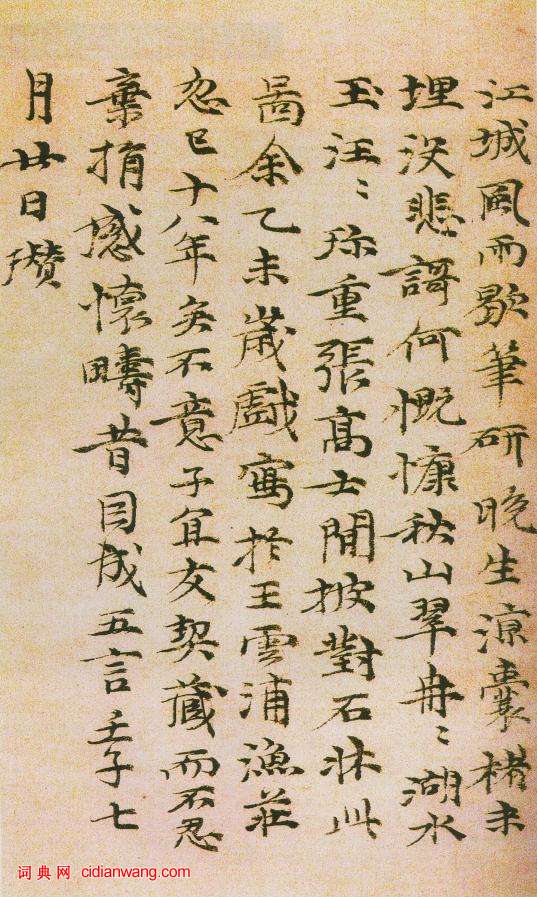 江城風雨歇筆研晚生涼囊楮未
埋没悲謌何慨慷秋山翠冉〻湖水
玉汪〻珎重張高士閒披對石牀此
啚余乙未歲戲寫於王雲浦漁莊
忽已十八年矣不意子宜友契藏而不忍
棄捐感懷疇昔因成五言壬子七
月廿日瓚
词典网 cidianwang.com